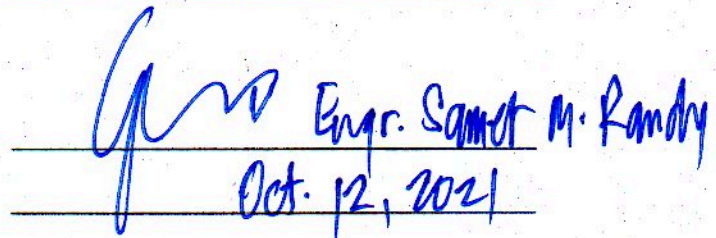 Engr. Samet M. Randy
Oct. 12, 2021